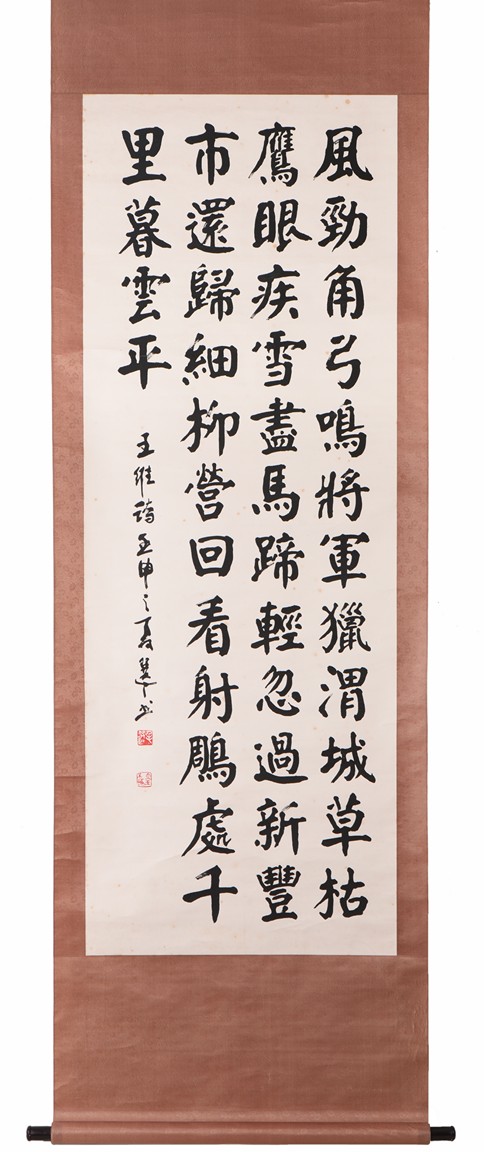 風勁角弓鳴將軍獵渭城草枯
鷹眼疾雪盡馬蹄輕忽過新豐
市還歸細柳營回看射鵰處千
里暮雲平
王維詩壬申之夏